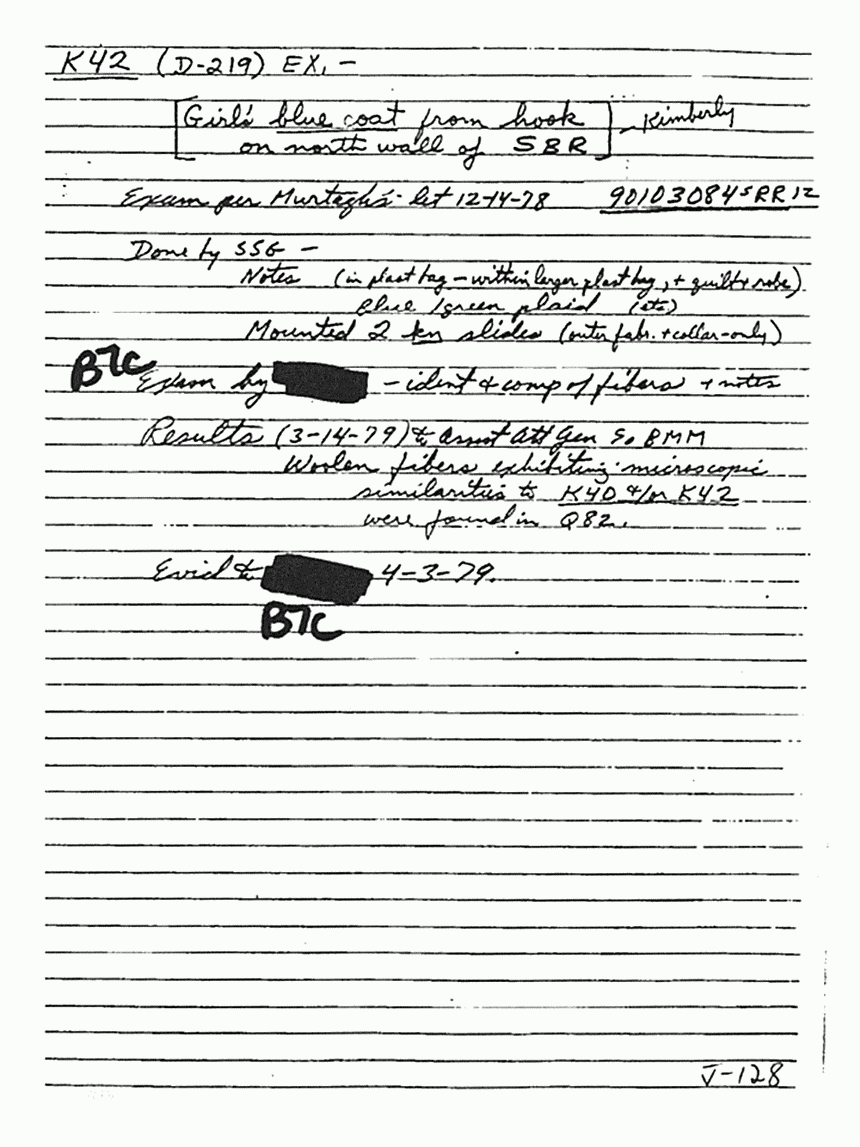 K42 (D-219) EX, -
Girl's blue coat from hook - Kimberly
on north wall of SBR
Exam per Murtagh's let 12-14-78 90103084 S RR 12
Done by SSG -
Notes (in plast bag - within larger plast bag, + quilt + robe)
Blue/green plaid (etc)
Mounted 2 kn slides (outer fabr. + collar-only)
B7C
Exam by - ident & comp of fibers + notes
Results (3-14-79) to Assist Att Gen BMM
Woolen fibers exhibiting microscopic
similarities to K40 &/or K42
were found in Q82.
Evid to 4-3-79.
B7C
J-128